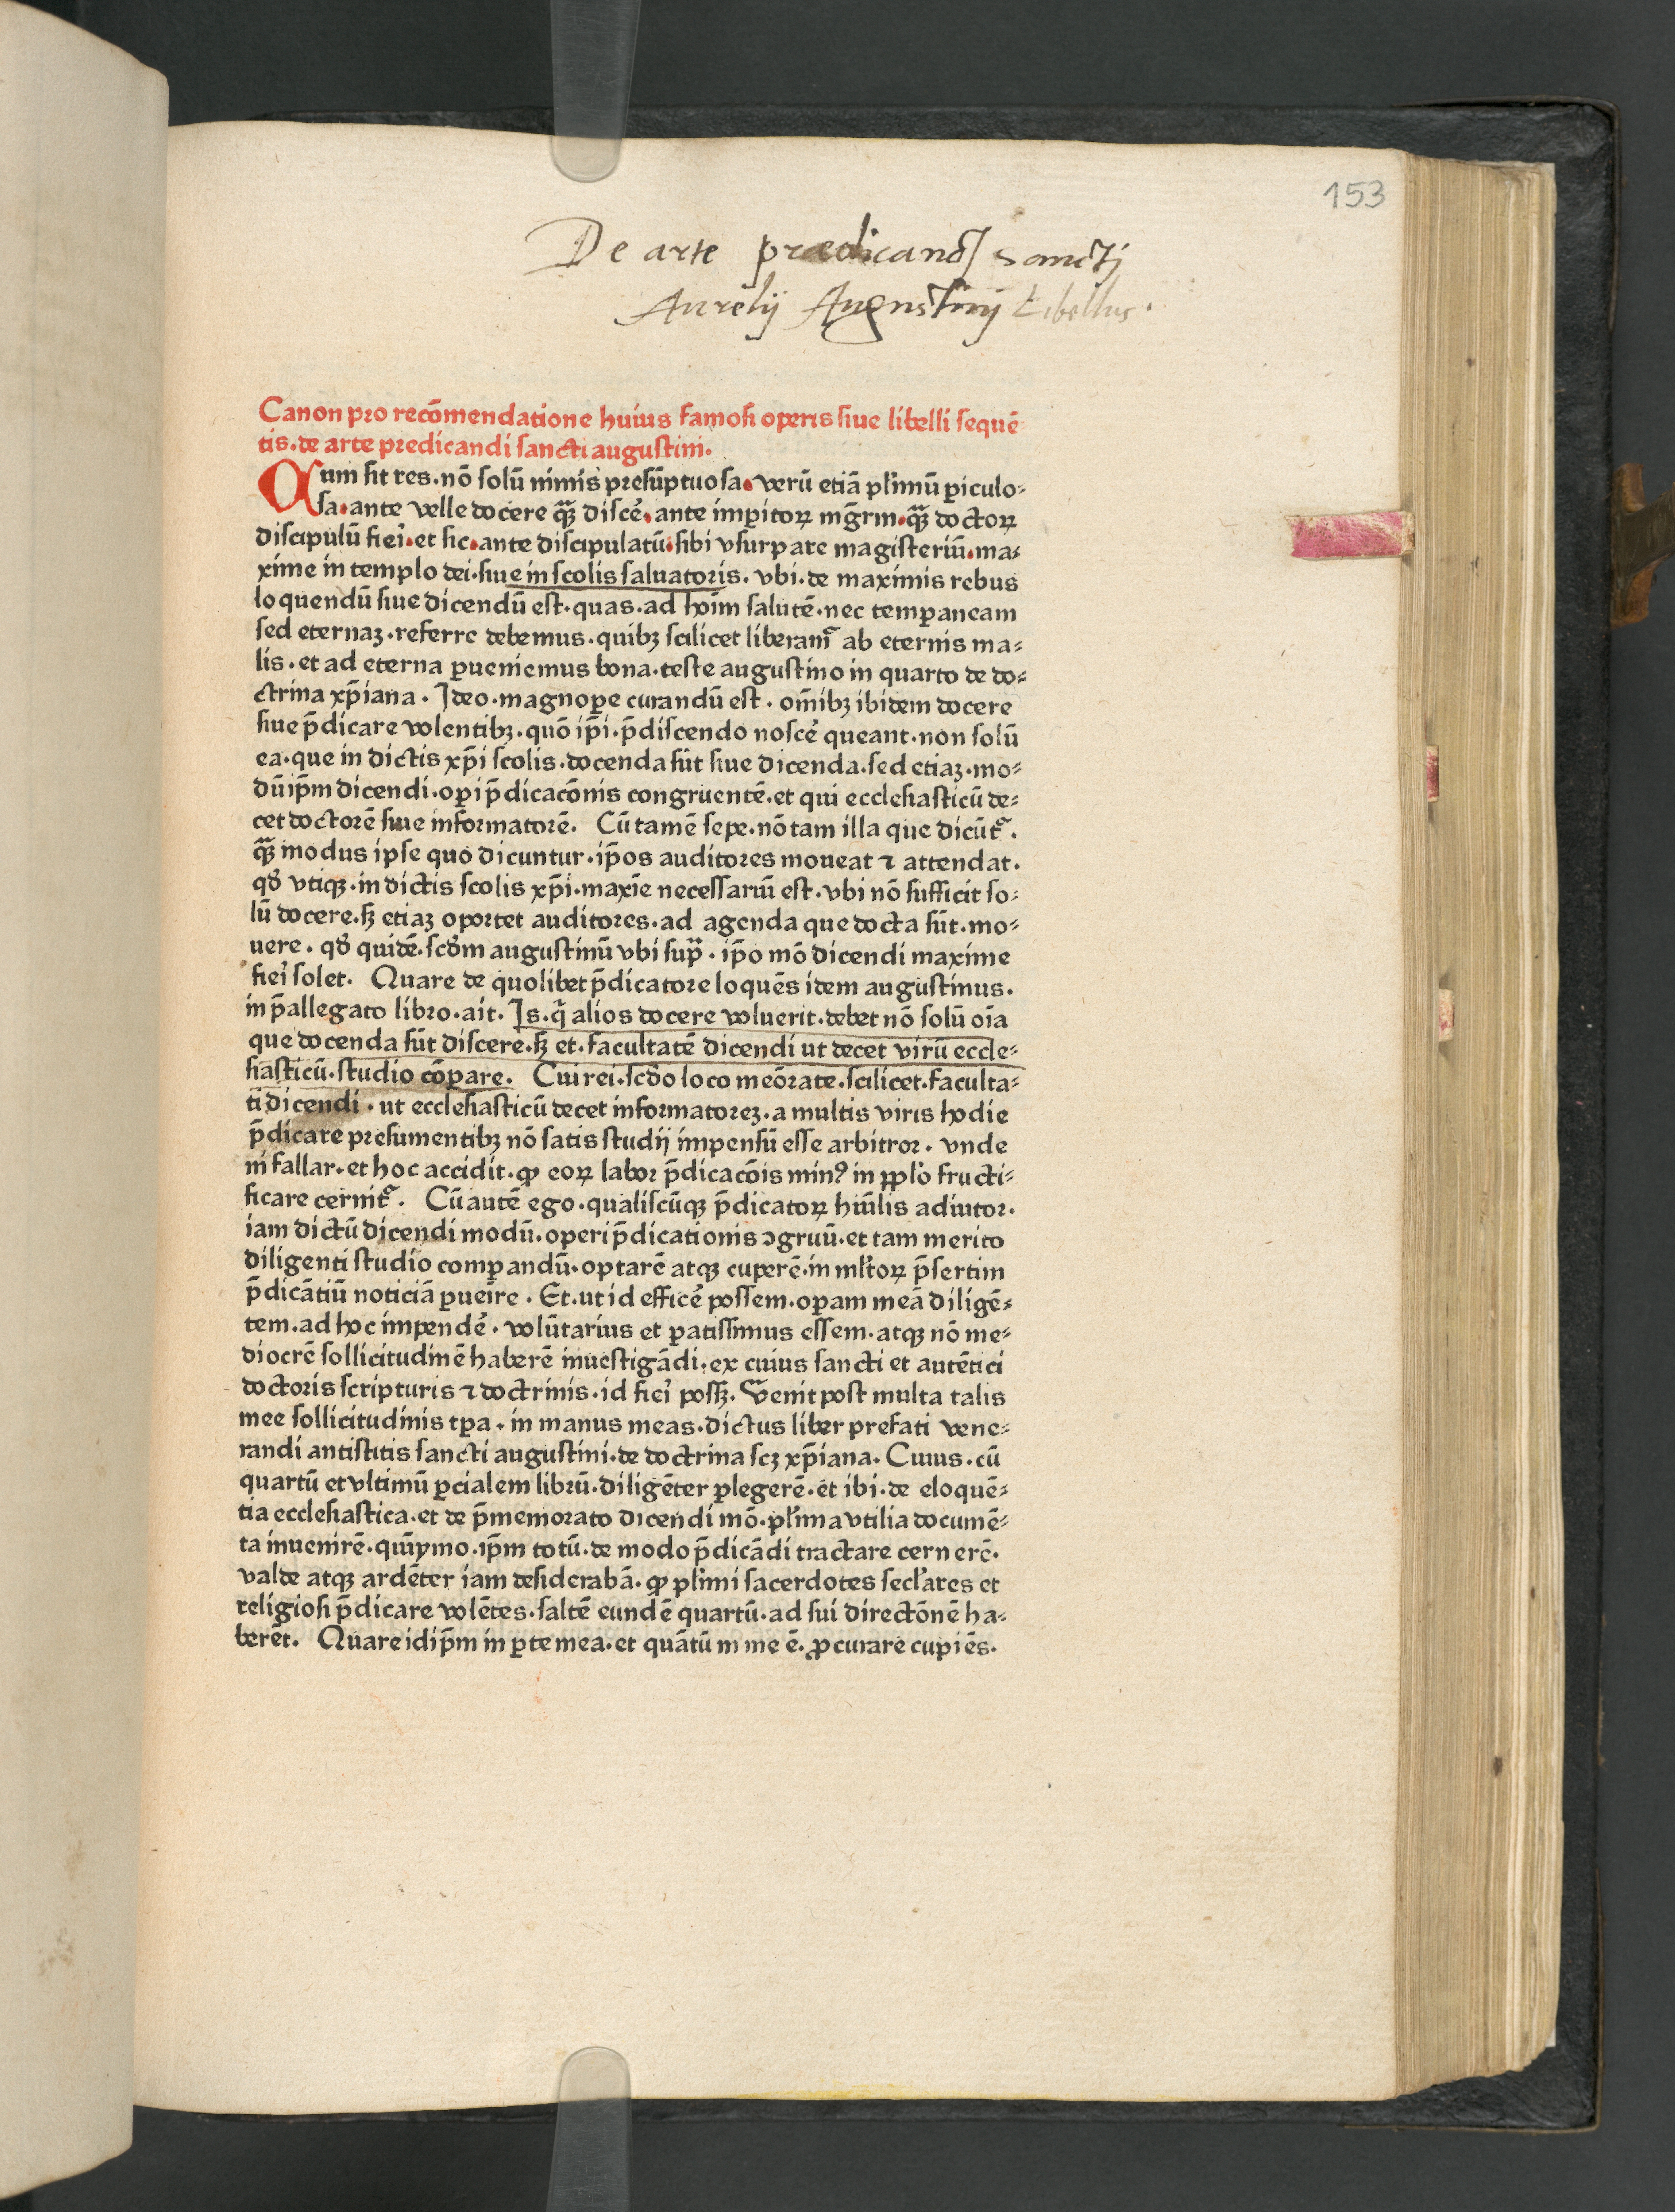 153
De arte prædicandj sanctj
Aurelij Augustinj Libellus.
Canon pro recōmendatione huius famosi operis siue libelli sequē
tis·de arte predicandi sancti augustini.
Cum sit res·nō solū nimis presūptuosa·verū etiā pl'imū ꝑiculo⸗
sa·ante velle docere qꝫ̄ discē·ante imꝑitoꝝ mḡrm·qꝫ̄ doctoꝝ
discipulū fieī·et sic·ante discipulatū·sibi vsurpare magisteriū·ma⸗
xime in templo dei·siue in scolis saluatoris. vbi·de maximis rebus
loquendū siue dicendū est·quas·ad hoīm salutē·nec temꝑaneam
sed eternaꝫ·referre debemus·quibꝫ scilicet liberam̄ ab eternis ma⸗
lis·et ad eterna ꝑueniemus bona·teste augustino in quarto de do⸗
ctrina xp̄iana. Ideo·magnoꝑe curandū est·om̄ibꝫ ibidem docere
siue p̄dicare volentibꝫ·quō ip̄i·p̄discendo noscē queant·non solū
ea·que in dictis xp̄i scolis·docenda sūt siue dicenda·sed etiaꝫ·mo⸗
dū ip̄m dicendi·oꝑi p̄dicacōnis congruentē·et qui ecclesiasticū de⸗
cet doctorē siue informatorē. Cū tamē sepe·nō tam illa que dicūt᷑.
qꝫ̄ modus ipse quo dicuntur·ip̄os auditores moueat ⁊ attendat.
qđ vtiqꝫ·in dictis scolis xp̄i·maxīe necessariū est·vbi nō sufficit so⸗
lū docere·sꝫ etiaꝫ oportet auditores·ad agenda que docta sūt·mo⸗
uere·qđ quidē·scđm augustinū vbi sup̄·ip̄o mō dicendi maxime
fieī solet. Quare de quolibet p̄dicatore loquēs idem augustinus.
in p̄allegato libro·ait. Is·q̄ alios docere voluerit·debet nō solū oīa
que docenda sūt discere·sꝫ et·facultatē dicendi ut decet virū eccle⸗
siasticū·studio cōꝑare. Cui rei·scđo loco meōrate·scilicet·faculta⸗
ti dicendi·ut ecclesiasticū decet informatoreꝫ·a multis viris hodie
p̄dicare presumentibꝫ nō satis studij impensū esse arbitror. vnde
ni fallar·et hoc accidit·ꝙ eoꝝ labor p̄dicacōis minꝰ in pp̄l'o fructi⸗
ficare cernit᷑. Cū autē ego·qualiscūqꝫ p̄dicatoꝝ hūilis adiutor.
iam dictū dicendi modū·operi p̄dicationis ↄgruū·et tam merito
diligenti studio comꝑandū·optarē atqꝫ cuꝑē·in ml'toꝝ p̄sertim
p̄dicātiū noticiā ꝑueīre. Et·ut id efficē possem·oꝑam meā diligē⸗
tem·ad hoc impendē·volūtarius et ꝑatissimus essem·atqꝫ nō me⸗
diocrē sollicitudinē haberē inuestigādi·ex cuius sancti et autētici
doctoris scripturis ⁊ doctrinis·id fieī possꝫ. Venit post multa talis
mee sollicitudinis tꝑa·in manus meas·dictus liber prefati vene⸗
randi antistitis sancti augustini·de doctrina scꝫ xp̄iana. Cuius·cū
quartū et vltimū ꝑcialem librū·diligēter ꝑlegerē·et ibi·de eloquē⸗
tia ecclesiastica·et de p̄memorato dicendi mō·pl'ima vtilia documē⸗
ta inuenirē·quīymo·ip̄m totū·de modo p̄dicādi tractare cernerē.
valde atqꝫ ardēter iam desiderabā·ꝙ pl'imi sacerdotes secl'ares et
religiosi p̄dicare volētes·saltē eundē quartū·ad sui directōnē ha⸗
berēt. Quare id ip̄m in ꝑte mea·et quātū in me ē·ꝓcurare cupiēs.